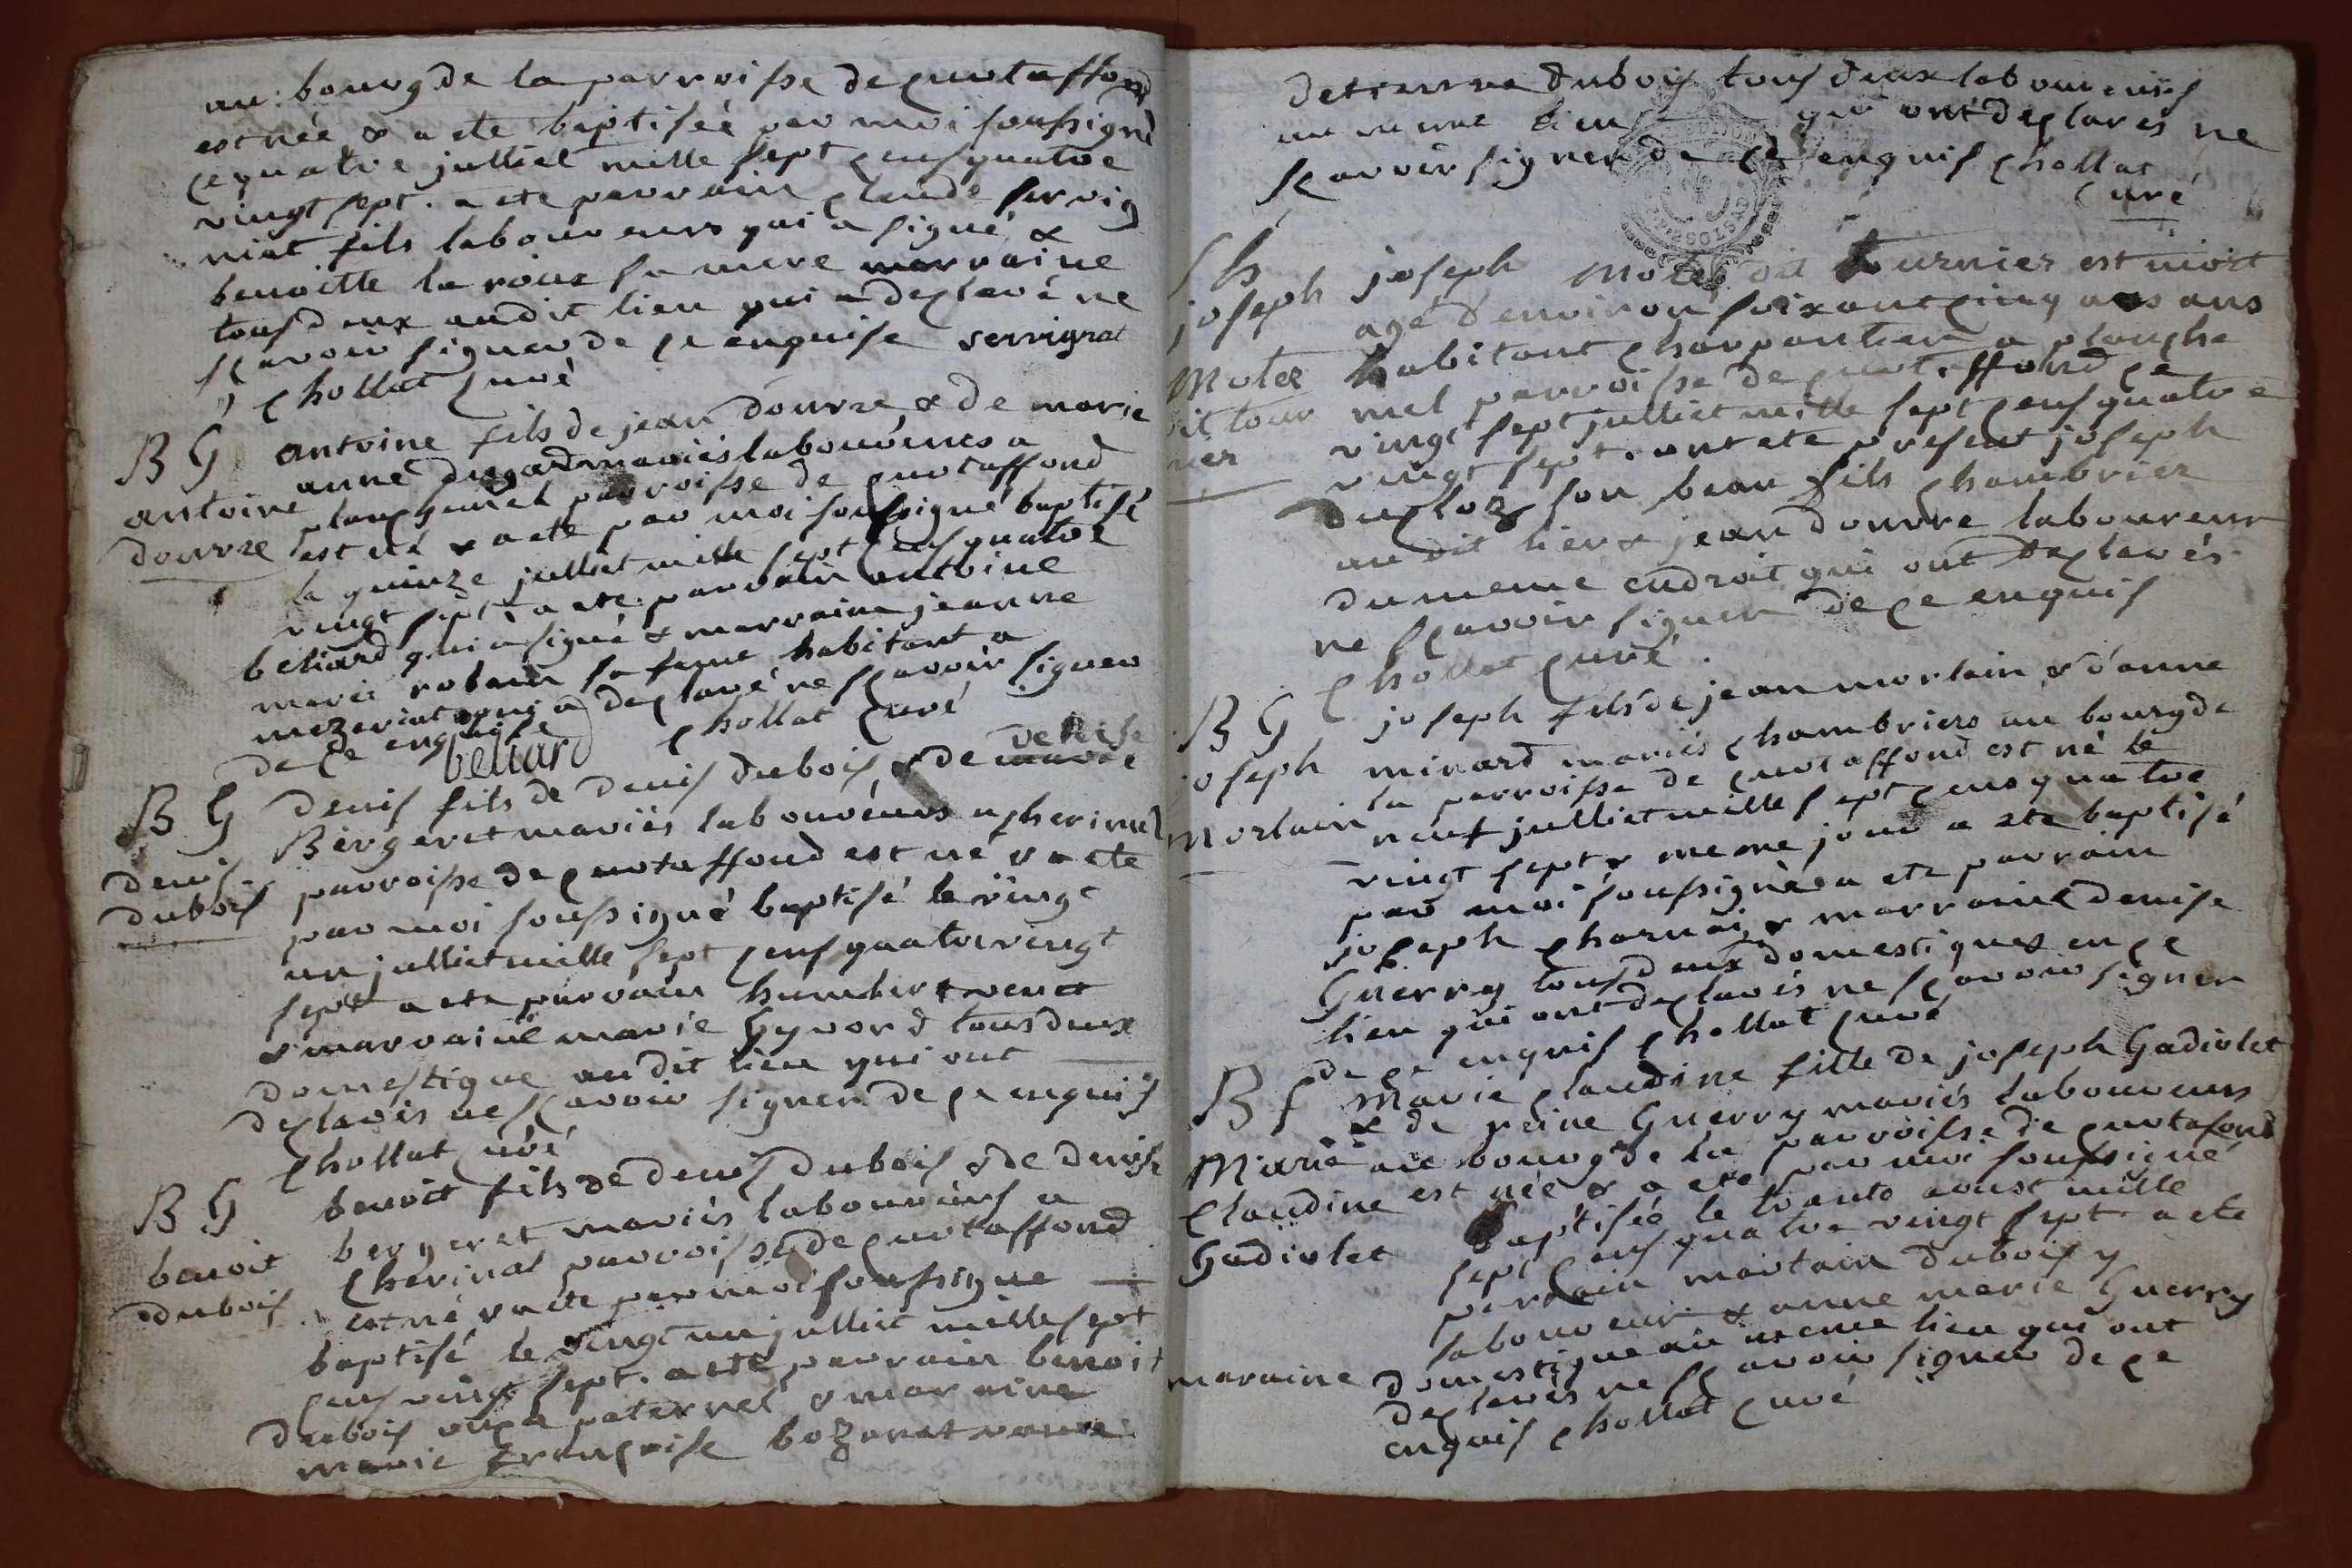 au bourg de la parroisse de curtaffond
est née & a ete baptisée par moi soussigné
ce quatre julliet mille sept cens quatre
vingt sept. a ete parrain claude servig
niat fils laboureurs qui a signé &
benoitte la roux sa mere marraine
tous deux audit lieu qui a declaré ne
scavoir signer de ce enquise servignat
chollat curé
BG antoine fils de jean dourre & de marie
anne dugard mariés laboureurs a
antoine planchemel parroisse de curtaffond
dourre est né & a ete par moi soussigné baptisé
le quinze julliet mille sept cens quatre
vingt sept. a ete parrain antoine
beliard qui a signé & marraine jeanne
marie robain sa feme habitant a
mezeriat qui a declaré ne scavoir signer
de ce enquise chollat curé
beliard
BG denis fils de denis dubois & de denise
Bergeret mariés laboureurs a cherinal
denis parroisse de curtaffond est né & a ete
dubois par moi soussigné baptisé le vingt
un julliet mille sept cens quatre vingt
sept a ete parrain humbert
& marraine marie Gyvord tous deux
domestique au dit lieu qui ont
declarés ne scavoir signer de ce enquis
chollat curé
BG benoit fils de denis dubois & de denise
bergeret mariés laboureurs a
benoit cherinal parroisse de curtaffond
dubois est né & a ete par moi soussigné
baptisé le vingt un julliet mille sept
cens vingt sept. a ete parrain benoit
dubois oncle paternel & maraine
marie françoise bozonet
detienne dubois tous deux laboureurs
au meme lieu qui ont declarés ne
scavoir signer de ce enquis chollat
curé
Sh
joseph joseph Motes dit tournier est mort
agé d'environ soixant cinq ans ans
Motes habitant charpantier a planche
dit tour mel parroisse de curtaffond ce
nier vingt sept julliet mille sept cens quatre
vingt sept. ont ete present joseph
ducloz son beau fils chambrier
au dit lieu & jean dourre laboureur
du meme endroit qui ont declarés
ne scavoir signer de ce enquis
chollat curé.
BG joseph fils de jean morlain & d'anne
joseph minard mariés chambriers au bourg de
morlain la parroisse de curtaffond est né le
neuf julliet mille sept cens quatre
vingt sept & meme jour a ete baptisé
par moi soussigné a ete parrain
joseph charnai & marraine denise
Guerry tous deux domestiques en ce
lieu qui ont declarés ne scavoir signer
de ce enquis chollat curé
Bf Marie claudine fille de joseph Gadiolet
& de reine Guerry mariés laboureurs
Marie au bourg de la parroisse de curtafond
claudine est née & a ete par moi soussigné
Gadiolet baptisée le trante aoust mille
sept cens quatre vingt sept. a ete
parrain martain dubois y
laboureur & anne marie Guerry
maraine domestique au meme lieu qui ont
declarés ne scavoir signer de ce
enquis chollat curé